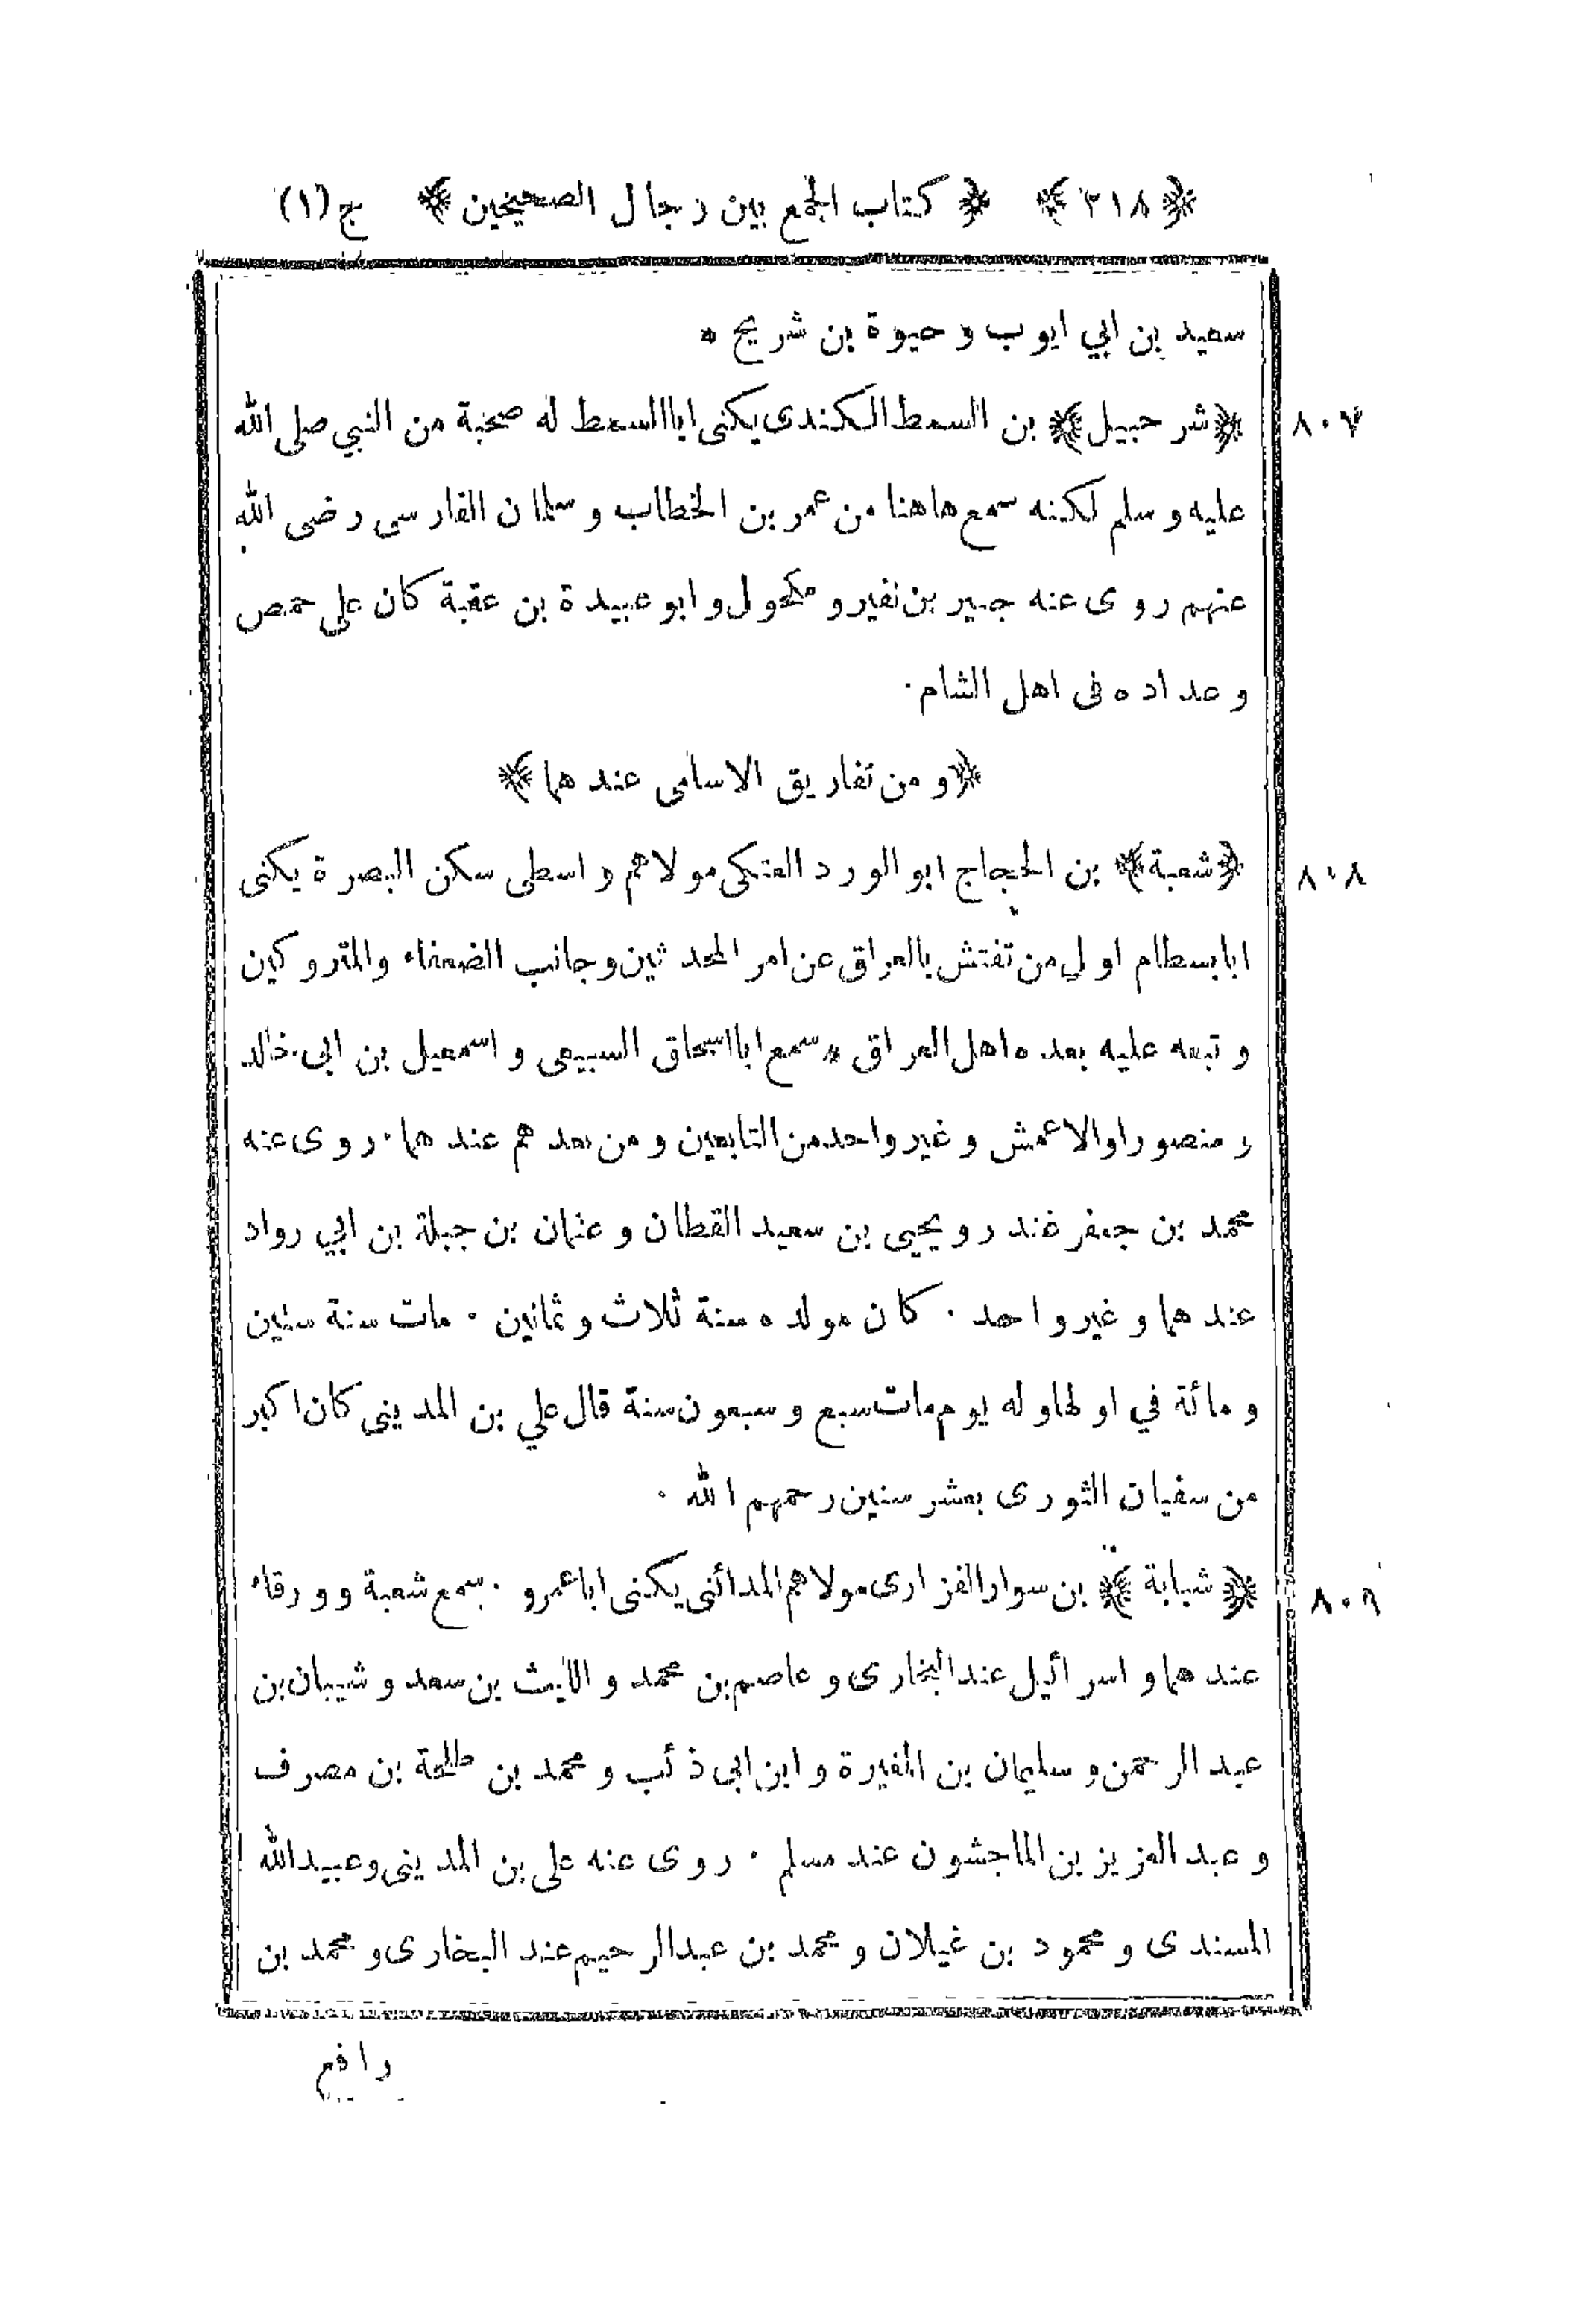 ﴿ ٢١٨ ﴾ ﴿ كتاب الجمع بين رجال الصحيحين ﴾ ج (١)
سعيد بن ابي ايوب وحيوة بن شريح *
٨٠٧ ﴿ شرحبيل ﴾ بن السمط الكندى يكنى ابا السمط له صحبة من النبي صلى الله
عليه وسلم لكنه سمع هاهنا من عمر بن الخطاب وسلمان الفارسى رضى الله
عنهم روى عنه جبير بن نفير ومكحول وابو عبيدة بن عقبة كان على حمص
وعداده فى اهل الشام ٠
﴿ ومن تفاريق الاسامى عندهما ﴾
٨٠٨ ﴿ شعبة ﴾ بن الحجاج ابو الورد العتكى مولاهم واسطى سكن البصرة يكنى
ابا بسطام اول من تفتش بالعراق عن امر المحدثين وجانب الضعفاء والمتروكين
وتبعه عليه بعده اهل العراق * سمع ابا اسحاق السبيعى واسمعيل بن ابى خالد
ومنصورا والاعمش وغير واحد من التابعين ومن بعدهم عندهما ٠ روى عنه
محمد بن جعفر غندر ويحيى بن سعيد القطان وعثمان بن جبلة بن ابي رواد
عندهما وغير واحد ٠ كان مولده سنة ثلاث وثمانين ٠ مات سنة ستين
ومائة في اولها وله يوم مات سبع وسبعون سنة قال علي بن المدينى كان اكبر
من سفيان الثورى بعشر سنين رحمهم الله ٠
٨٠٩ ﴿ شبابة ﴾ بن سوار الفزارى مولاهم المدائنى يكنى ابا عمرو ٠ سمع شعبة وورقاء
عندهما واسرائيل عند البخارى وعاصم بن محمد والليث بن سعد وشيبان بن
عبد الرحمن وسليمان بن المغيرة وابن ابى ذئب ومحمد بن طلحة بن مصرف
وعبد العزيز بن الماجشون عند مسلم ٠ روى عنه على بن المدينى وعبيد الله
المسندى ومحمود بن غيلان ومحمد بن عبد الرحيم عند البخارى ومحمد بن
رافع